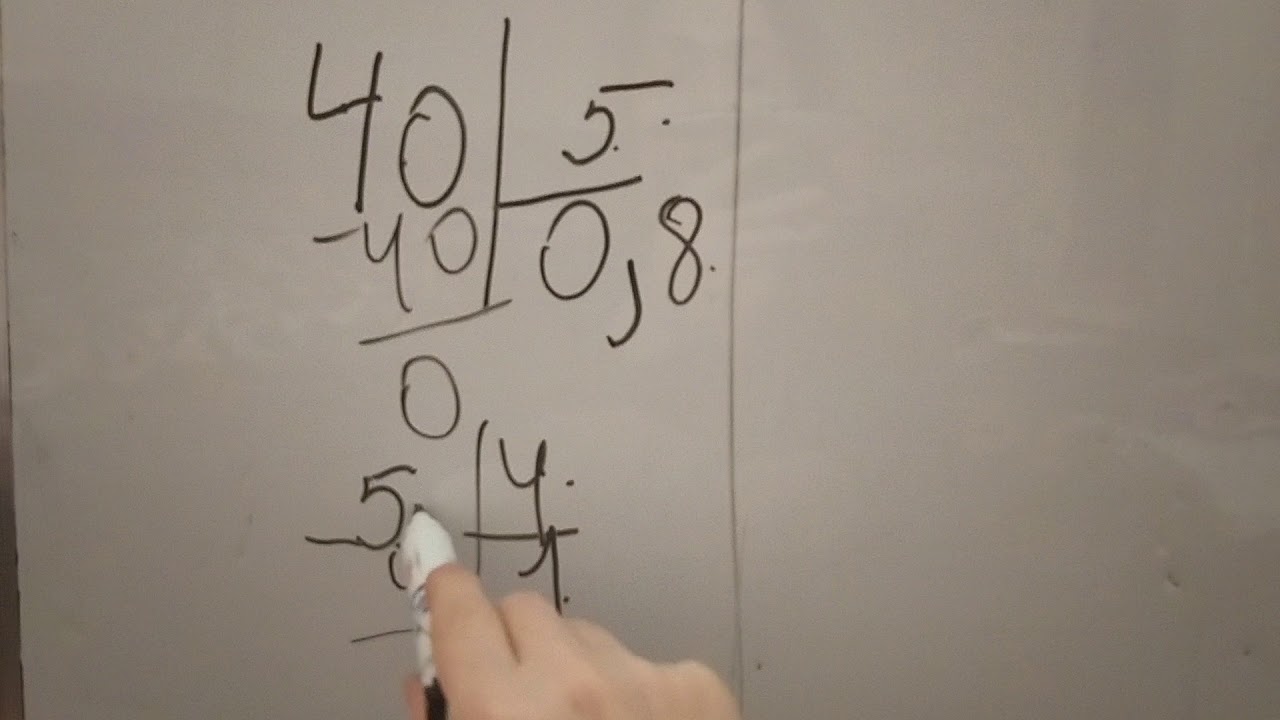 40 5
-40 0,8
0
5 4
- 1